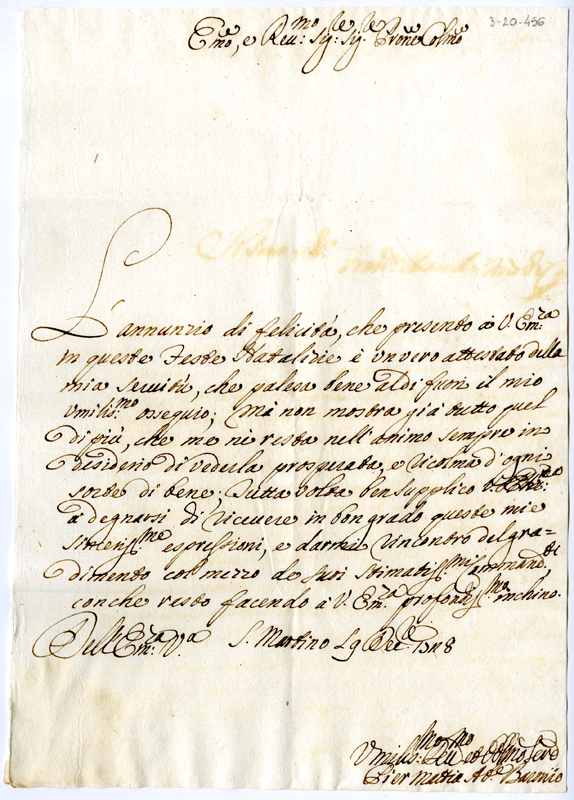 3-20-456
Em̃o, e Reu:mo Sig:le Sig:le Prõne Colmo
L'annunzio di felicità, che presento à V. Em:ra
in queste Feste Natalizie è un vero attestato della
mia seruitù, che palesa bene al di fuori il mio
Vmilis:mo ossequio; mà non mostra già tutto quel
di più, che me ne resta nell'animo sempre in
desiderio di vederla prosperata, e ricolma d'ogni
sorte di bene; Tutta volta ben supplico
à degnarsi di riceuere in bon grado queste mie
sinceris:me espressioni, e darmi rincontro del gra=
dimento col mezzo de suoi stimatis:mi commandti,
con che resto facendo à V. Em:ra profondis:mo inchino.
Dell'Em:ra V.a S. Martino Dec:e
Vmilis:mo
Pier Maria